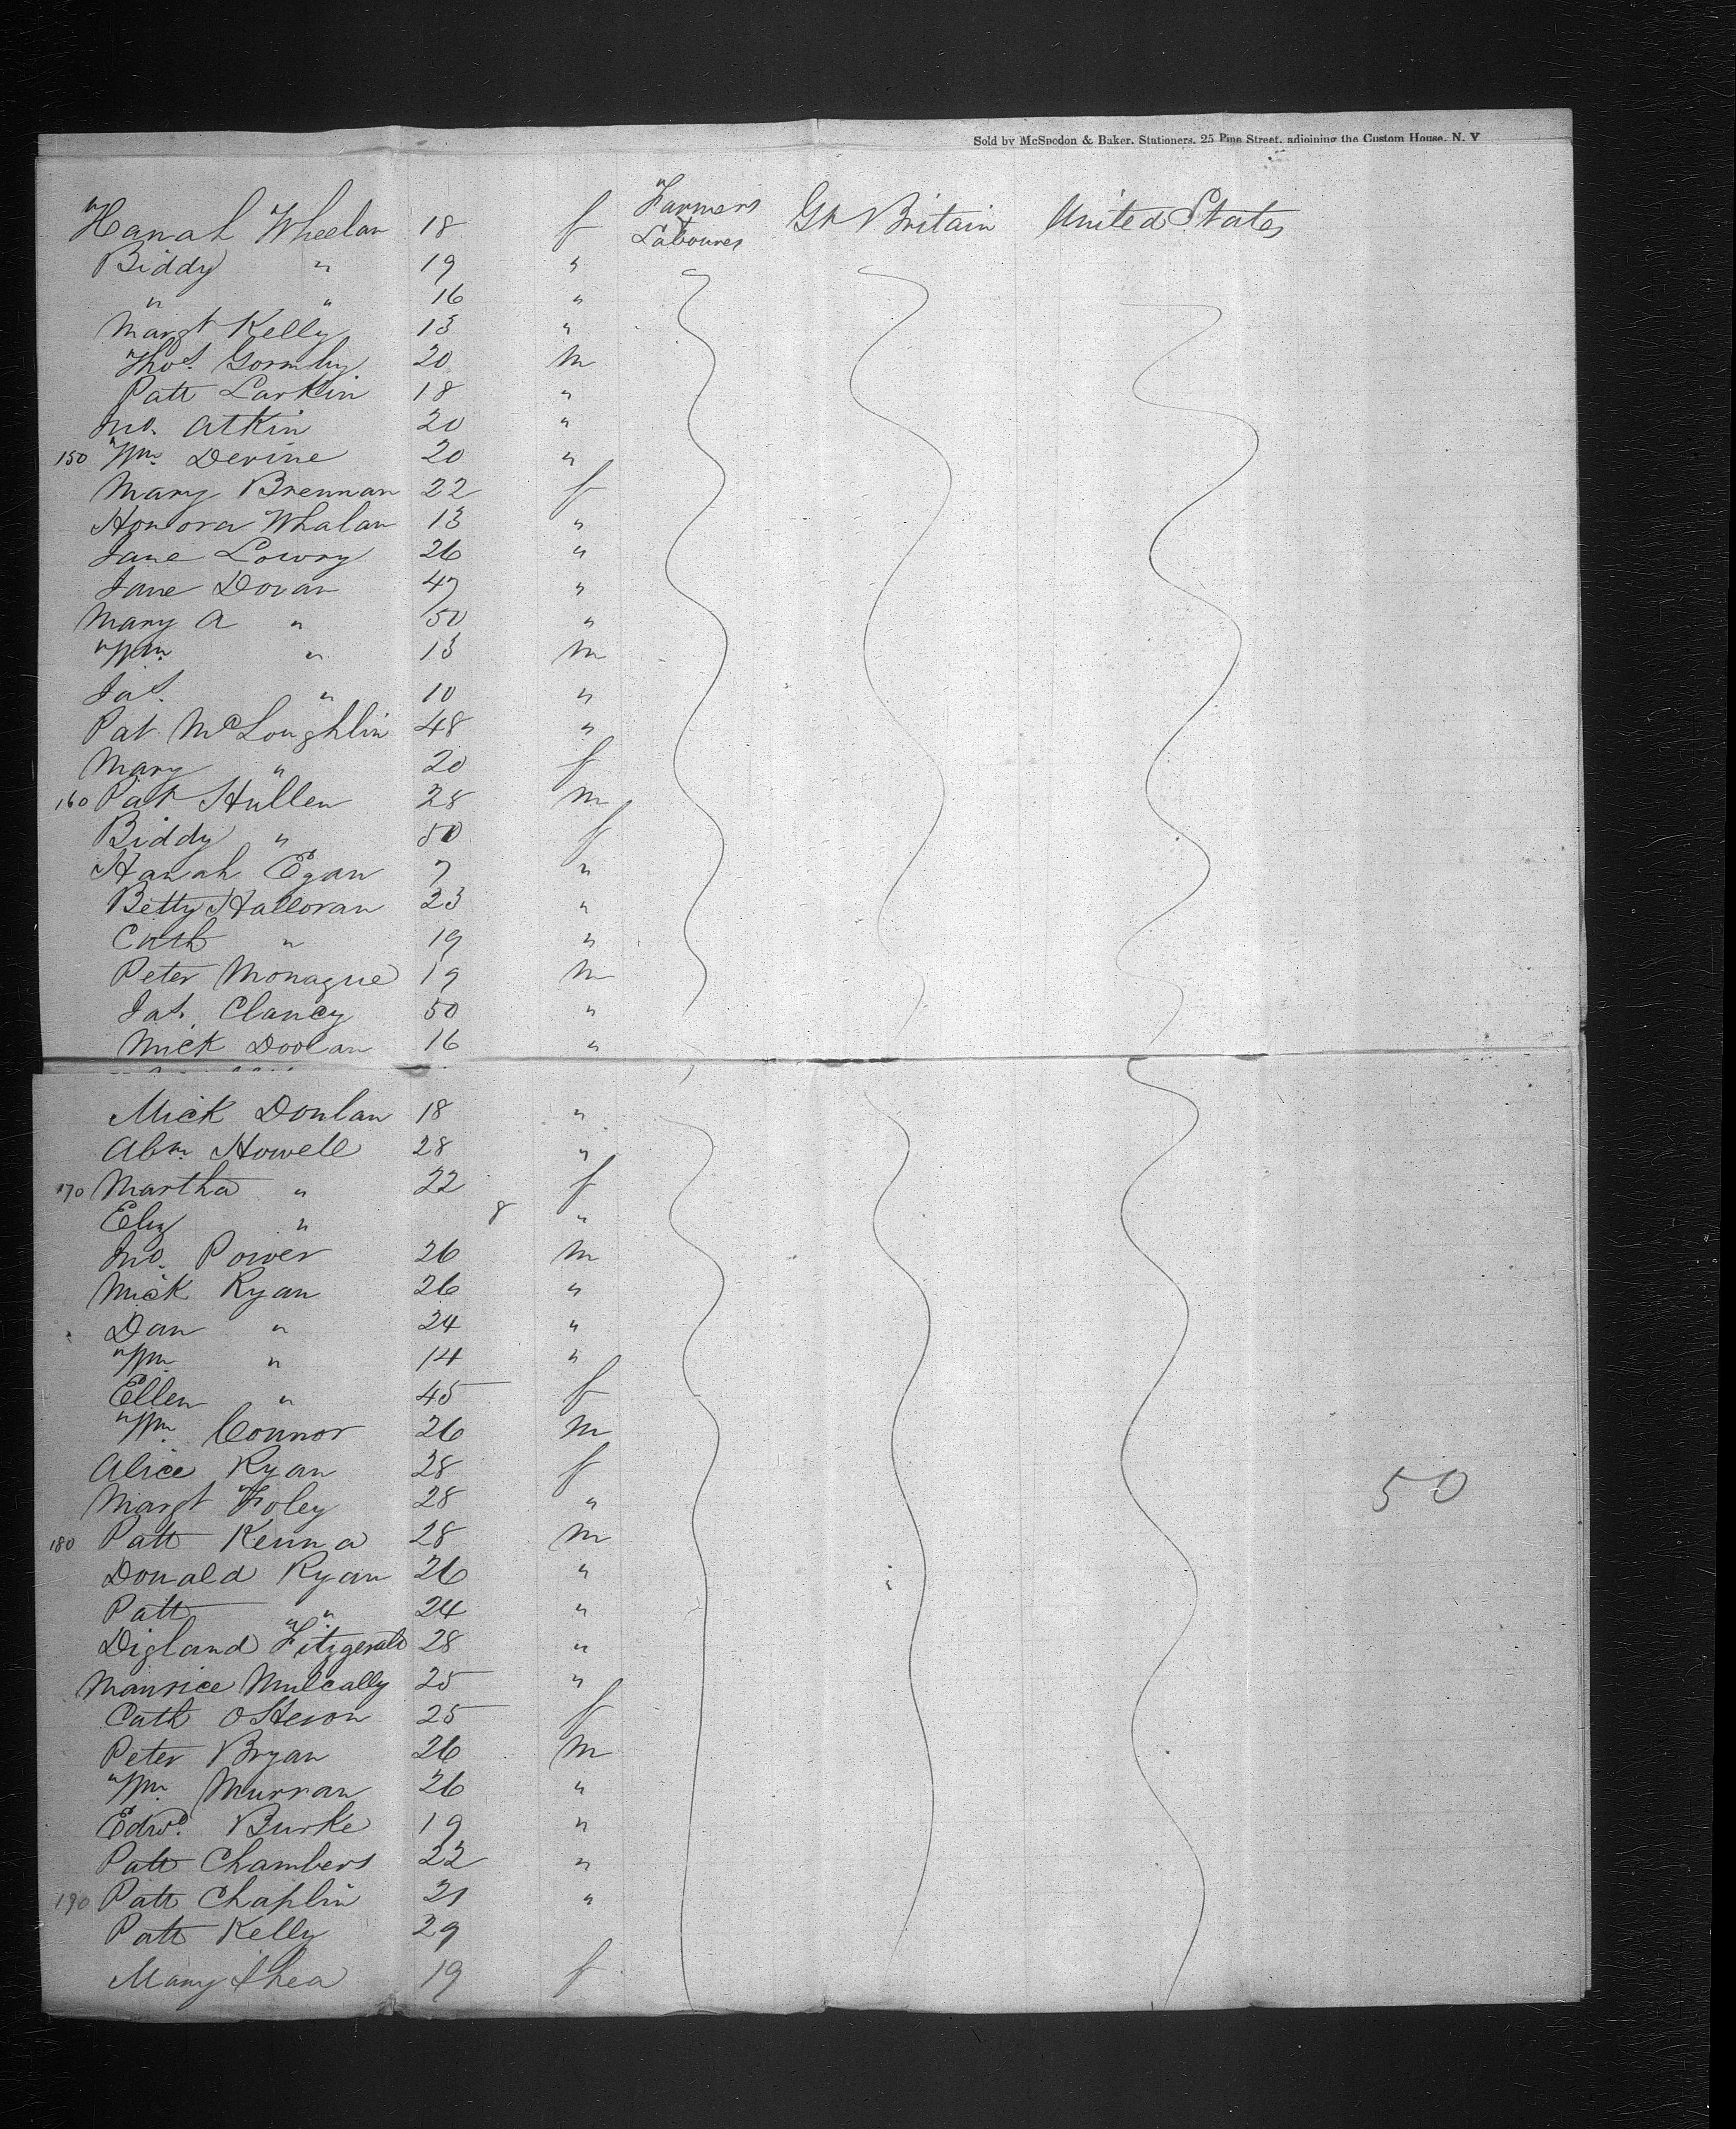 Sold by McSpedon & Baker, Stationers, 25 Pine Street, adjoining the Custom House, N. Y
Hanah Wheelan 18 f Farmers & Laboures Gt Britain United States
Biddy " 19 "
" " 16 "
Margt Kelly 13 "
Thos. Gormley 20 m
Patt Larkin 18 "
Jno. Atkin 20 "
150 Wm. Devine 20 "
Mary Brennan 22 f
Honora Whalan 13 "
Jane Lowry 26 "
Jane Dovan 47 "
Mary A " 50 "
Wm. " 13 m
Jas. " 10 "
Pat McLoughlin 48 "
Mary " 20 f
160 Pat Hullen 28 m
Biddy " 50 f
Hanah Egan 7 "
Betty Halloran 23 "
Cath " 19 "
Peter Monague 19 m
Jas. Clancy 50 "
Mick Doolan 16 "
Mick Donlan 18 "
Abm. Howell 28 "
170 Martha " 22 f
Eliz " 8 "
Jno. Power 26 m
Mick Ryan 26 "
Dan " 24 "
Wm. " 14 "
Ellen " 45 f
Wm. Connor 26 m
Alice Ryan 28 f
Margt Foley 28 "
50
180 Patt Kenna 28 m
Donald Ryan 26 "
Patt " 24 "
Digland Fitzgerald 28 "
Maurice Mulcally 25 "
Cath OHeron 25 f
Peter Bryan 26 m
Wm. Murran 26 "
Edwd. Burke 19 "
Patt Chambers 22 "
190 Patt Chaplin 21 "
Patt Kelly 29
Mary Shea 19 f